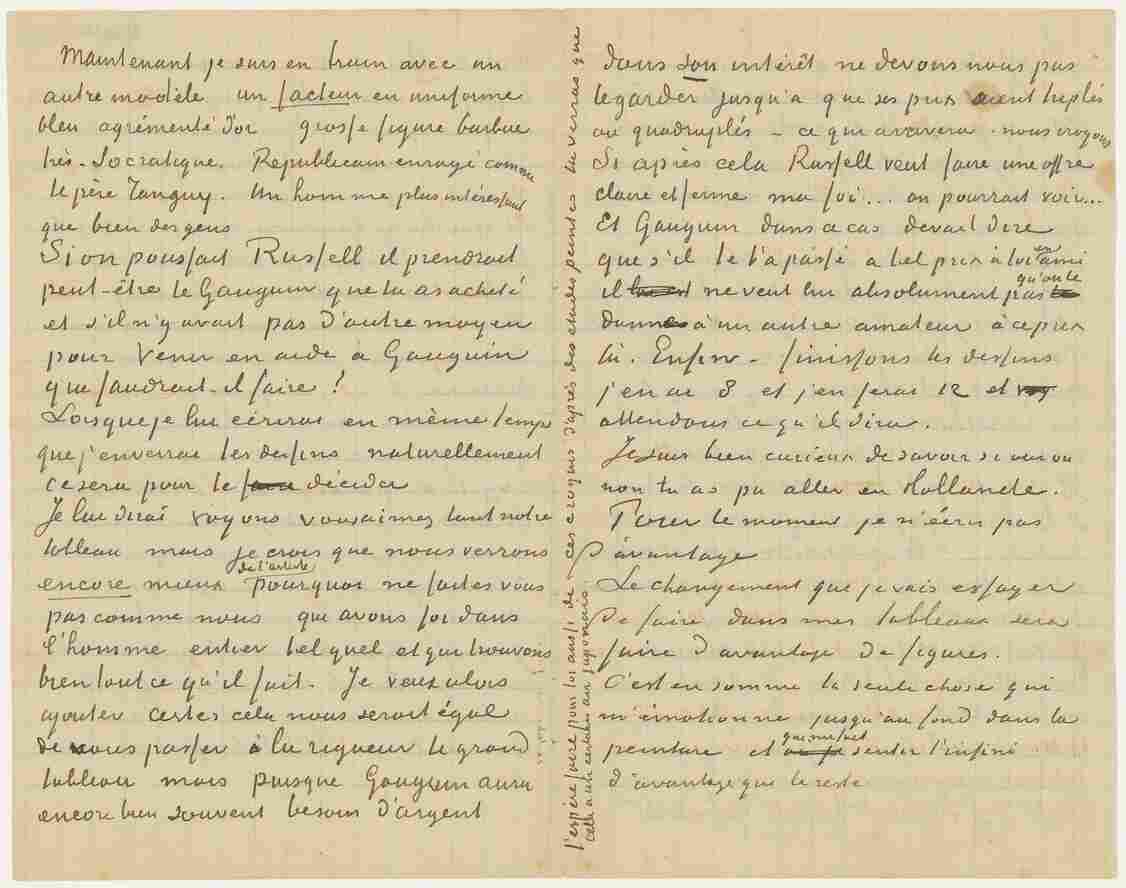 Maintenant je suis en train avec un
autre modèle un facteur en uniforme
bleu agrémenté d'or grosse figure barbue
très-socratique. Republicain enragé comme
le père Tanguy. Un homme plus intéressant
que bien des gens
Si on poussait Russell il prendrait
peut-être le Gauguin que tu as acheté
et s'il n'y avait pas d'autre moyen
pour venir en aide à Gauguin
que faudrait-il faire !
Lorsque je lui écrirai en même temps
que j'enverrai les dessins naturellement
ce sera pour le faire décider
Je lui dirai voyons vous aimez tant notre
tableau mais je crois que nous verrons
encore mieux de l'artiste pourquoi ne faites vous
pas comme nous que avons foi dans
l'homme entier tel quel et que trouvons
bien tout ce qu'il fait. Je veux alors
ajouter certes cela nous serait égal
de vous passer à la rigueur le grand
tableau mais puisque Gauguin aura
encore bien souvent besoin d'argent
dans son intérêt ne devons nous pas
le garder jusqu'a que ses prix aient triplés
ou quadruplés – ce qui arrivera nous croyons
Si après cela Russell veut faire une offre
claire et ferme ma foi... on pourrait voir...
Et Gauguin dans ce cas devait dire
que s'il te l'a passé a tel prix à toi en ami
il ne veut lui absolument pas qu'on le
donne à un autre amateur à ce prix
là. Enfin – finissons les dessins
j'en ai 8 et j'en ferai 12 et
attendons ce qu'il dira.
Je suis bien curieux de savoir si oui ou
non tu as pu aller en Hollande.
Pour le moment je n'écris pas
d'avantage
Le changement que je vais essayer
de faire dans mes tableaux sera
faire d'avantage de figures.
C'est en somme la seule chose qui
m'émotionne jusqu'au fond dans la
peinture et que me fait sentir l'infini
d'avantage que le reste
J'espère faire pour toi aussi de ces croquis d'après des etudes peintes tu verras que
cela a un certain air japonais.